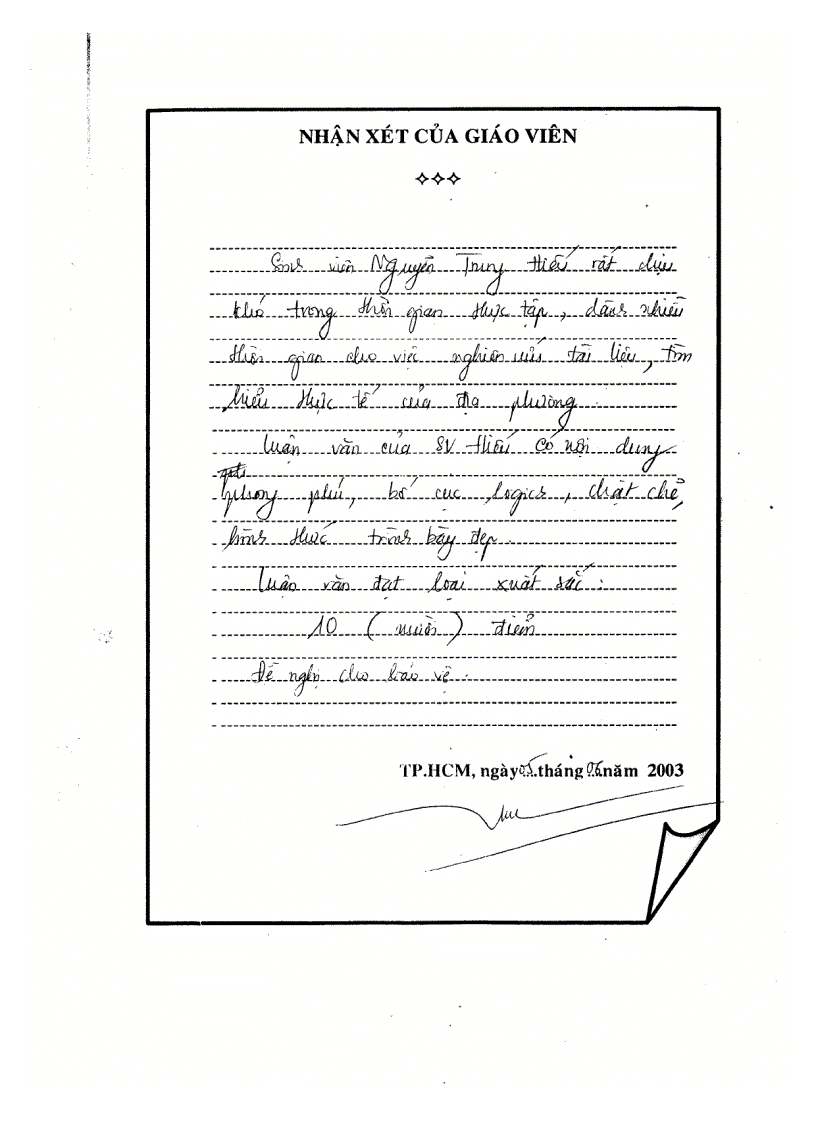 NHẬN XÉT CỦA GIÁO VIÊN
Sinh viên Nguyễn Trung Hiếu rất chịu
khó trong thời gian thực tập, dành nhiều
thời gian cho việc nghiên cứu tài liệu, tìm
hiểu thực tế của địa phương.
Luận văn của SV Hiếu có nội dung
phong phú, bố cục logics, chặt chẽ,
hình thức trình bày đẹp.
Luận văn đạt loại xuất sắc:
10 (mười) điểm
Đề nghị cho bảo vệ.
TP.HCM, ngày tháng 06 năm 2003